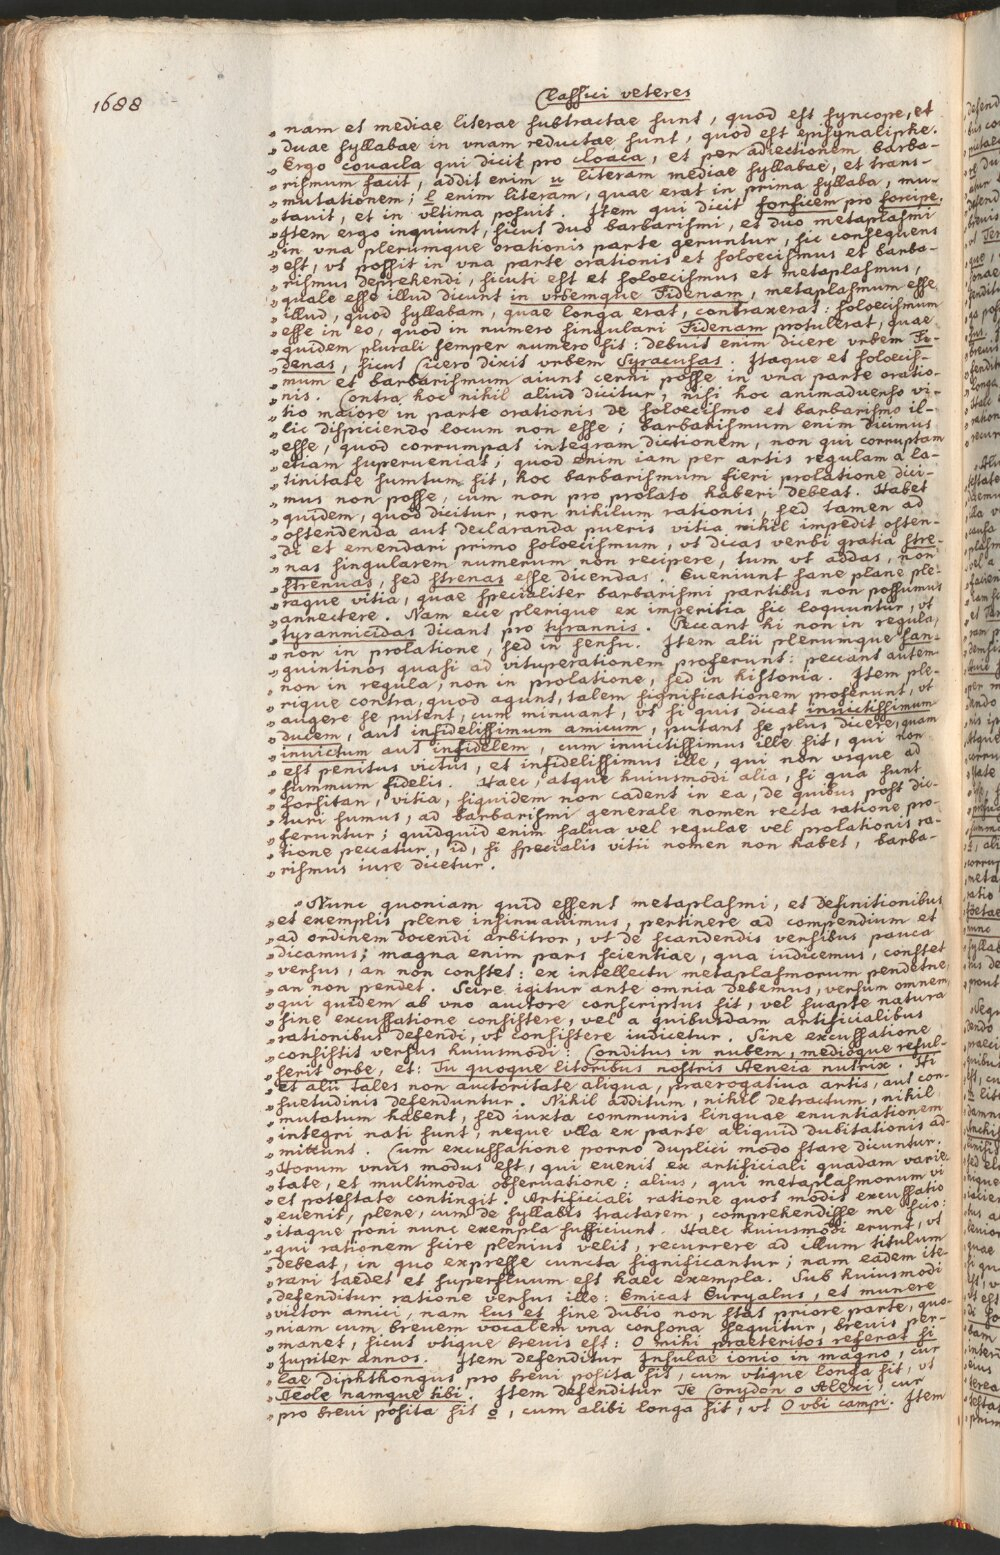 1688
Classici veteres
„ nam et mediae literae subtractae sunt, quod est syncope, et
„ duae syllabae in vnam reductae sunt, quod est episynaliphe.
„ Ergo couacla qui dicit pro cloaca, et per adiectionem barba-
„ rismum facit, addit enim u literam mediae syllabae, et trans-
„ mutationem; l enim literam, quae erat in prima syllaba, mu-
„ tauit, et in vltima posuit. Item qui dicit forficem pro forcipe.
„ Item ergo inquiunt, sicut duo barbarismi, et duo metaplasmi
„ in vna plerumque orationis parte geruntur, sic consequens
„ est, vt possit in vna parte orationis et soloecismus et barba-
„ rismus deprehendi, sicuti est et soloecismus et metaplasmus,
„ quale esse illud dicunt in vrbemque Fidenam, metaplasmum esse
„ illud, quod syllabam, quae longa erat, contraxerat: soloecismum
„ esse in eo, quod in numero singulari Fidenam protulerat, quae
„ quidem plurali semper numero sit: debuit enim dicere vrbem Fi-
„ denas, sicut Cicero dixit vrbem Syracusas. Itaque et soloecis-
„ mum et barbarismum aiunt cerni posse in vna parte oratio-
„ nis. Contra hoc nihil aliud dicitur, nisi hoc animaduerso vi-
„ tio maiore in parte orationis de soloecismo et barbarismo il-
„ lic dispiciendo locum non esse; barbarismum enim dicimus
„ esse, quod corrumpat integram dictionem, non qui corruptam
„ etiam superueniat; quod enim iam per artis regulam a la-
„ tinitate sumtum sit, hoc barbarismum fieri prolatione dici-
„ mus non posse, cum non pro prolato haberi debeat. Habet
„ quidem, quod dicitur, non nihilum rationis, sed tamen ad
„ ostendenda aut declaranda pueris vitia nihil impedit osten-
„ di et emendari primo soloecismum, vt dicas verbi gratia stre-
„ nas singularem numerum non recipere, tum vt addas, non
„ strenuas, sed strenas esse dicendas. Eueniunt sane plane ple-
„ raque vitia, quae specialiter barbarismi partibus non possumus
„ annectere. Nam ecce plerique ex imperitia sic loquuntur, vt
„ tyrannicidas dicant pro tyrannis. Peccant hi non in regula,
„ non in prolatione, sed in sensu. Item alii plerumque san-
„ quintinos quasi ad vituperationem proferunt: peccant autem
„ non in regula, non in prolatione, sed in historia. Item ple-
„ rique contra, quod agunt, talem significationem proferunt, vt
„ augere se putent, cum minuant, vt si quis dicat inuictissimum
„ ducem, aut infidelissimum amicum, putant se plus dicere, quam
„ inuictum aut infidelem, cum inuictissimus ille sit, qui non
„ est penitus victus, et infidelissimus ille, qui non vsque ad
„ summum fidelis. Haec, atque huiusmodi alia, si qua sunt
„ forsitan, vitia, siquidem non cadent in ea, de quibus post dic-
„ turi sumus, ad barbarismi generale nomen recta ratione pro-
„ feruntur; quidquid enim salua vel regulae vel prolationis ra-
„ tione peccatur, id, si specialis vitii nomen non habet, barba-
„ rismus iure dicetur.
„ Nunc quoniam quid essent metaplasmi, et definitionibus
„ et exemplis plene insinuauimus, pertinere ad compendium et
„ ad ordinem docendi arbitror, vt de scandendis versibus pauca
„ dicamus; magna enim pars scientiae, qua iudicemus, constet
„ versus, an non constet: ex intellectu metaplasmorum pendetne,
„ an non pendet. Scire igitur ante omnia debemus, versum omnem,
„ qui quidem ab vno auctore conscriptus sit, vel suapte natura
„ sine excussatione consistere, vel a quibusdam artificialibus
„ rationibus defendi, vt consistere iudicetur. Sine excussatione
„ consistit versus huiusmodi: Conditus in nubem, medioque reful-
„ serit orbe, et: Tu quoque litoribus nostris Aeneia nutrix. Hi
„ et alii tales non auctoritate aliqua, praerogatiua artis, aut con-
„ suetudinis defenduntur. Nihil additum, nihil detractum, nihil
„ mutatum habent, sed iuxta communis linguae enuntiationem
„ integri nati sunt, neque vlla ex parte aliquid dubitationis ad-
„ mittunt. Cum excussatione porro duplici modo stare dicuntur.
„ Horum vnus modus est, qui euenit ex artificiali quadam varie-
„ tate, et multimoda obseruatione: alius, qui metaplasmorum vi
„ et potestate contingit. Artificiali ratione quot modis excussatio
„ euenit, plene, cum de syllabis tractarem, comprehendisse me scio:
„ itaque poni nunc exempla sufficiunt. Haec huiusmodi erunt, vt
„ qui rationem scire plenius velit, recurrere ad illum titulum
„ debeat, in quo expresse cuncta significantur; nam eadem ite-
„ rari taedet et superfluum est haec exempla. Sub huiusmodi
„ defenditur ratione versus ille: Emicat Euryalus, et munere
„ victor amici, nam lus et sine dubio non stat priore parte, quo-
„ niam cum breuem vocalem vna consona sequitur, breuis per-
„ manet, sicut vtique breuis est: O mihi praeteritos referat si
„ Jupiter annos. Item defenditur Insulae ionio in magno, cur
„ lae diphthongus pro breui posita sit, cum vtique longa sit, vt
„ Aeole namque tibi. Item defenditur Te Corydon o Alexi, cur
„ pro breui posita sit o, cum alibi longa sit, vt O vbi campi. Item